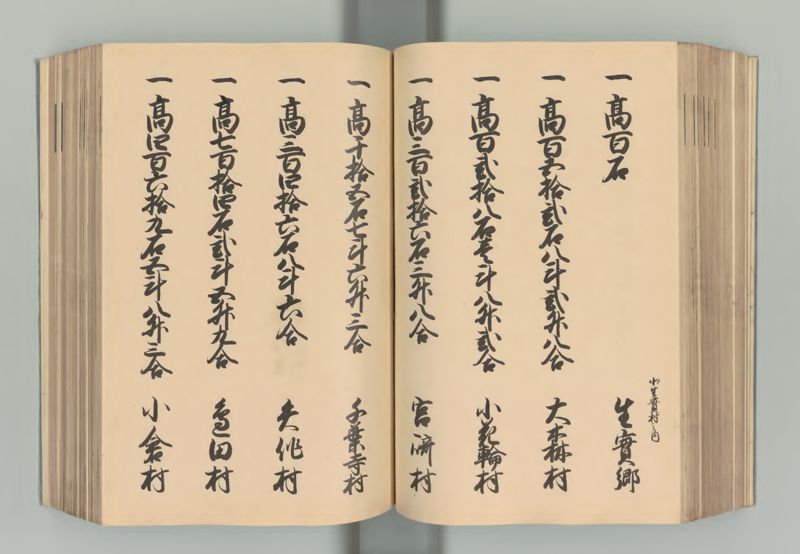 一高百石 生實郷
小生實村之内
一高百五拾弐石八斗弐升八合 大森村
一高百弐拾八石壱斗八升弐合 小花輪村
一高三百弐拾六石三升八合 宮﨑村
一高千拾五石七斗六升三合 千葉寺村
一高三百四拾六石八斗六合 矢作村
一高七百拾四石弐斗五升九合 邉田村
一高四百六拾九石五斗八升三合 小倉村